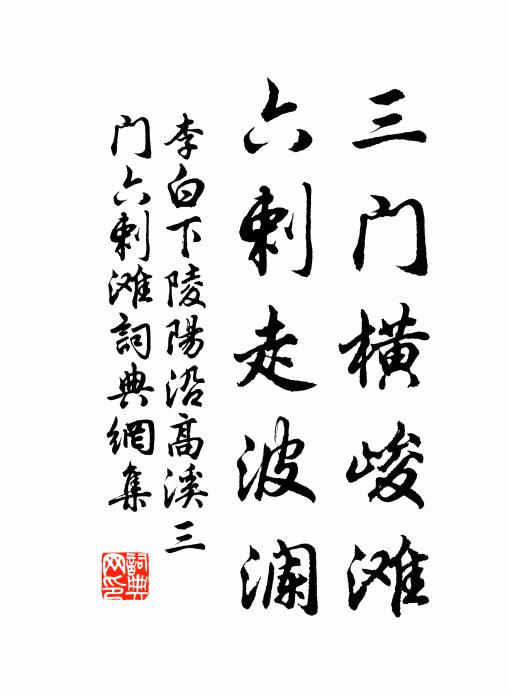 三门横峻滩
六刺走波澜
李白下陵陽沿高溪三
门六刺滩詞典網集
詞典网印